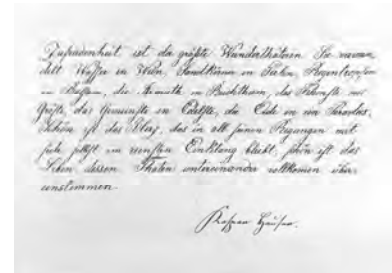 Zufriedenheit ist die größte Wunderthäterin. Sie verwan-
delt Wasser in Wein, Sandkörner in Perlen, Regentropfen
in Balsam, die Armuth in Reichthum, das Kleinste ins
Größte, das Gemeinste in Edelste, die Erde in ein Paradies.
Schön ist das Herz, das in all seinen Regungen mit
sich selbst im reinsten Einklang bleibt, schön ist das
Leben dessen Thaten untereinander vollkommen über-
einstimmen.
Kaspar Hauser.